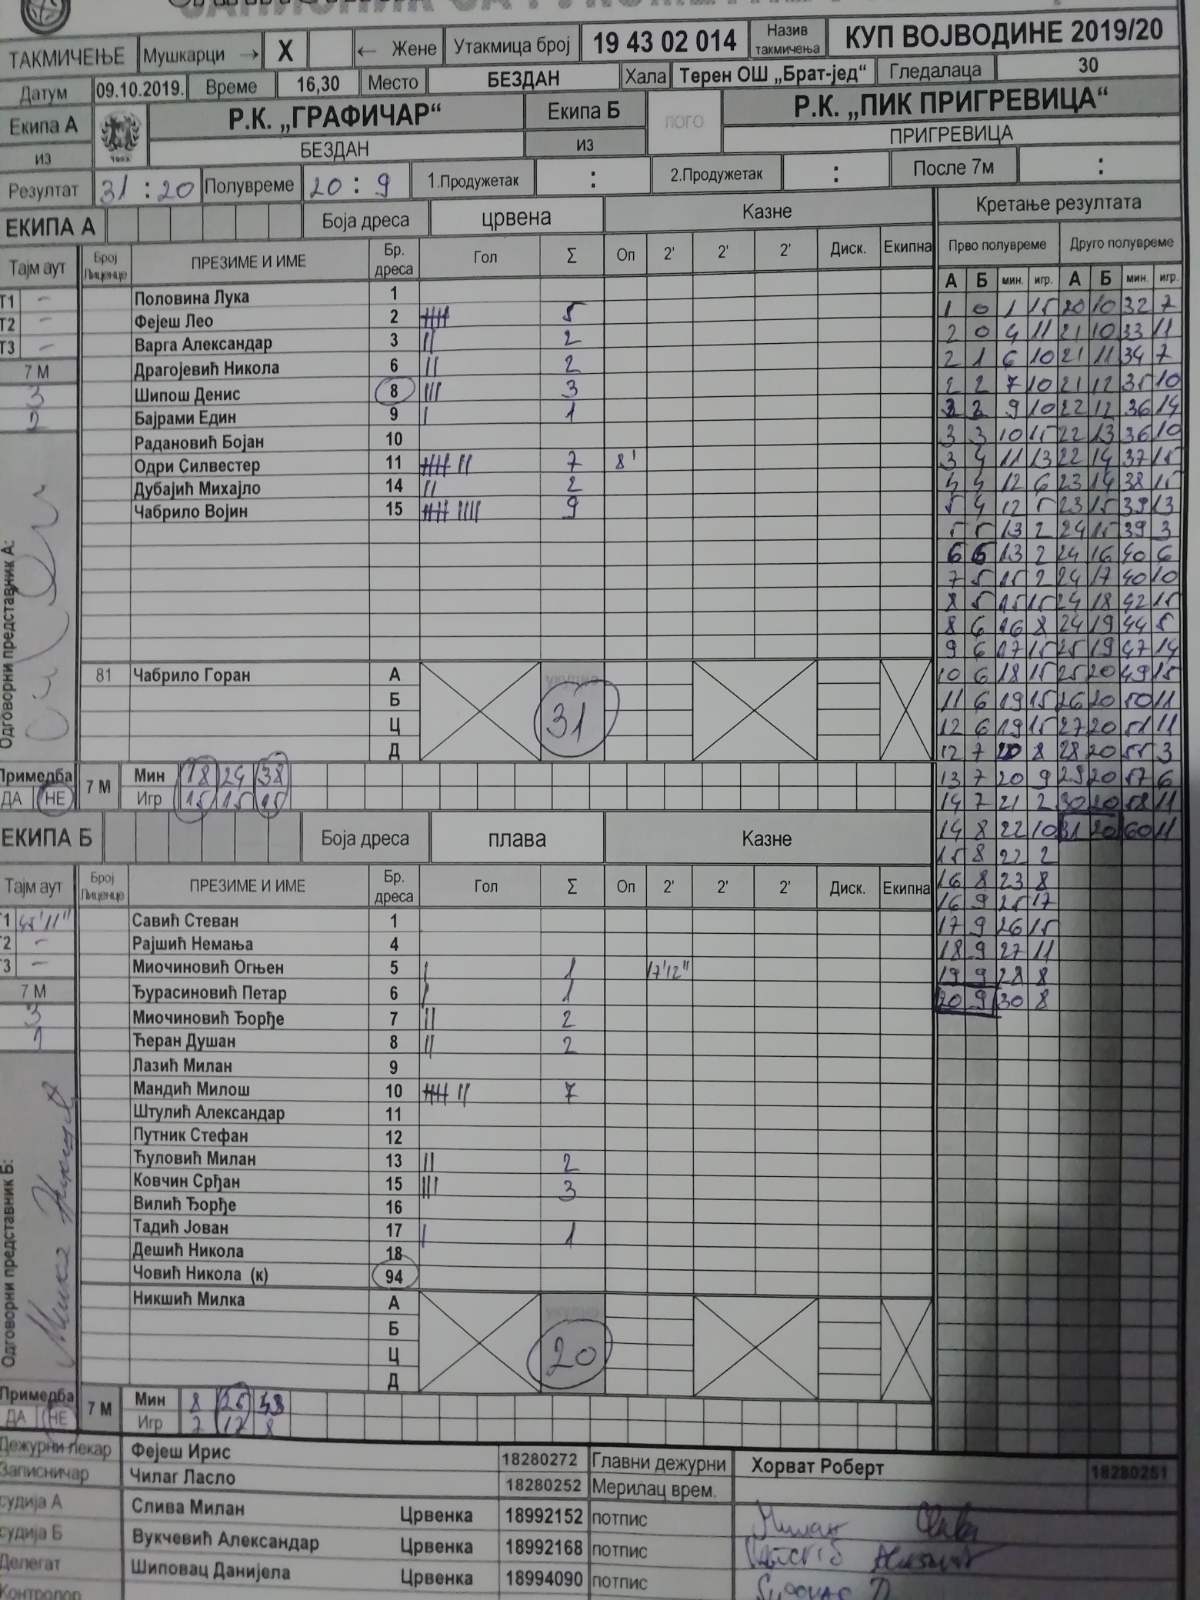 ТАКМИЧЕЊЕ Мушкарци → X ← Жене Утакмица број 19 43 02 014 Назив такмичења КУП ВОЈВОДИНЕ 2019/20
Датум 09.10.2019. Време 16,30 Место БЕЗДАН Хала Терен ОШ „Брат-јед“ Гледалаца 30
Екипа А Р.К. „ГРАФИЧАР“ Екипа Б ЛОГО Р.К. „ПИК ПРИГРЕВИЦА“
из БЕЗДАН из ПРИГРЕВИЦА
Резултат 31 : 20 Полувреме 20 : 9 1.Продужетак : 2.Продужетак : После 7м :
ЕКИПА А Боја дреса црвена Казне
Тајм аут Број Лиценце ПРЕЗИМЕ И ИМЕ Бр. дреса Гол Σ Оп 2' 2' 2' Диск. Екипна
Т1 – Половина Лука 1
Т2 – Фејеш Лео 2 5
Т3 – Варга Александар 3 || 2
7 М Драгојевић Никола 6 || 2
3 Шипош Денис 8 ||| 3
2 Бајрами Един 9 | 1
Радановић Бојан 10
Одри Силвестер 11 7 8'
Дубајић Михајло 14 || 2
Чабрило Војин 15 9
Одговорни представник А:
81 Чабрило Горан А
Б
Ц
Д
31
Примедба ДА НЕ
7 М Мин 18 24 38
Игр 15 15 15
ЕКИПА Б Боја дреса плава Казне
Тајм аут Број Лиценце ПРЕЗИМЕ И ИМЕ Бр. дреса Гол Σ Оп 2' 2' 2' Диск. Екипна
Т1 45'11" Савић Стеван 1
Т2 – Рајшић Немања 4
Т3 – Миочиновић Огњен 5 | 1 17'12"
7 М Ђурасиновић Петар 6 | 1
3 Миочиновић Ђорђе 7 || 2
1 Ћеран Душан 8 || 2
Лазић Милан 9
Мандић Милош 10 7
Штулић Александар 11
Путник Стефан 12
Ћуловић Милан 13 || 2
Ковчин Срђан 15 ||| 3
Вилић Ђорђе 16
Тадић Јован 17 | 1
Дешић Никола 18
Човић Никола (к) 94
Одговорни представник Б:
Никшић Милка А
Б
Ц
Д
20
Примедба ДА НЕ
7 М Мин 8 25
Игр 2 17 8
Кретање резултата
Прво полувреме Друго полувреме
А Б мин. игр. А Б мин. игр.
1 0 1 15 20 10 32 7
2 0 4 11 21 10 33 11
2 1 6 10 21 11 34 7
2 2 7 10 21 12 35 10
9 10 22 12 36 14
3 3 10 15 22 13 36 10
3 4 11 13 22 14 37 15
4 4 12 6 23 14 38 15
5 4 12 5 23 15 39 13
5 5 13 2 24 15 39 3
6 5 13 2 24 16 40 6
7 5 15 2 24 17 40 10
8 5 15 15 24 18 42 15
8 6 16 8 24 19 44 5
9 6 17 15 25 19 47 14
10 6 18 15 25 20 49 15
11 6 19 15 26 20 50 11
12 6 19 15 27 20 51 11
12 7 20 8 28 20 55 3
13 7 20 9 29 20 57 6
14 7 21 2 30 20 58 11
14 8 22 10 31 20 60 11
15 8 22 2
16 8 23 8
16 9 25 17
17 9 26 15
18 9 27 11
19 9 28 8
20 9 30 8
Дежурни лекар Фејеш Ирис 18280272 Главни дежурни Хорват Роберт 18280251
Записничар Чилаг Ласло 18280252 Мерилац врем.
судија А Слива Милан Црвенка 18992152 потпис
судија Б Вукчевић Александар Црвенка 18992168 потпис
Делегат Шиповац Данијела Црвенка 18994090 потпис
Контролор